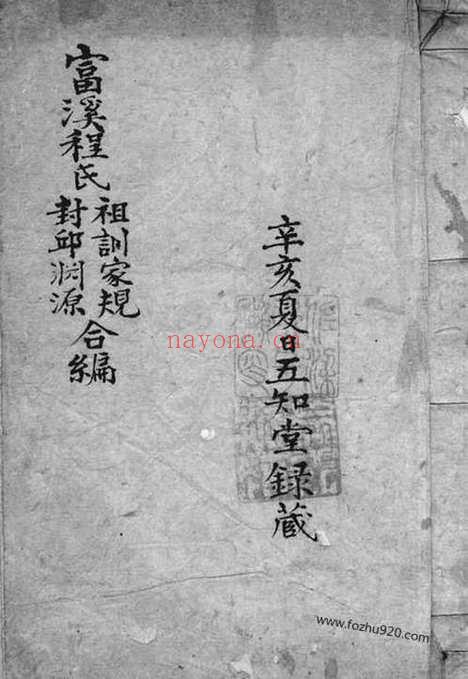 辛亥夏日五知堂録藏
富溪程氏
祖訓家規
封邱渊源
合編
nayona.cn
www.fozhu920.com